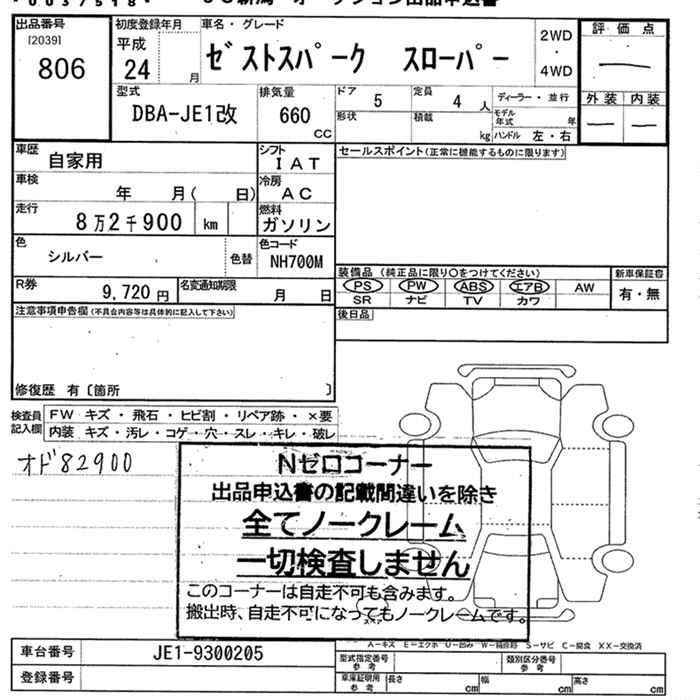 出品番号
I20391
806
初度登録年月
平成
24
月
車名・グレード
ｾﾞｽﾄｽﾊﾟｰｸ ｽﾛｰﾊﾟｰ
2WD
・
4WD
評価点
外装 内装
型式
DBA-JE1改
排気量
660
CC
ドア
5
定員
4 人
ディーラー・並行
形状
積載
kg
モデル年式
年
ハンドル 左・右
車歴
自家用
シフト
IAT
車検
年 月( 日)
冷房
AC
走行
8万2千900
km
燃料
ガソリン
色
シルバー
色替
色コード
NH700M
R券
9,720円
名変通知期限
月 日
セールスポイント(正常に機能するものに限ります)
装備品(純正品に限り○をつけてください)
新車保証書
PS PW ABS エアB AW
有・無
SR ナビ TV カワ
後日品
注意事項申告欄(不具合内容等は具体的に記入して下さい)
修復歴 有〔箇所 〕
検査員記入欄
FW キズ・飛石・ヒビ割・リペア跡・×要
内装 キズ・汚レ・コゲ・穴・スレ・キレ・破レ
オド82900
Nゼロコーナー
出品申込書の記載間違いを除き
全てノークレーム
一切検査しません
このコーナーは自走不可も含みます。
搬出時、自走不可になってもノークレームです。
車台番号
JE1-9300205
登録番号
型式指定番号
参考
類別区分番号
参考
車庫証明用
参考
長さ
cm
幅
cm
高さ
cm